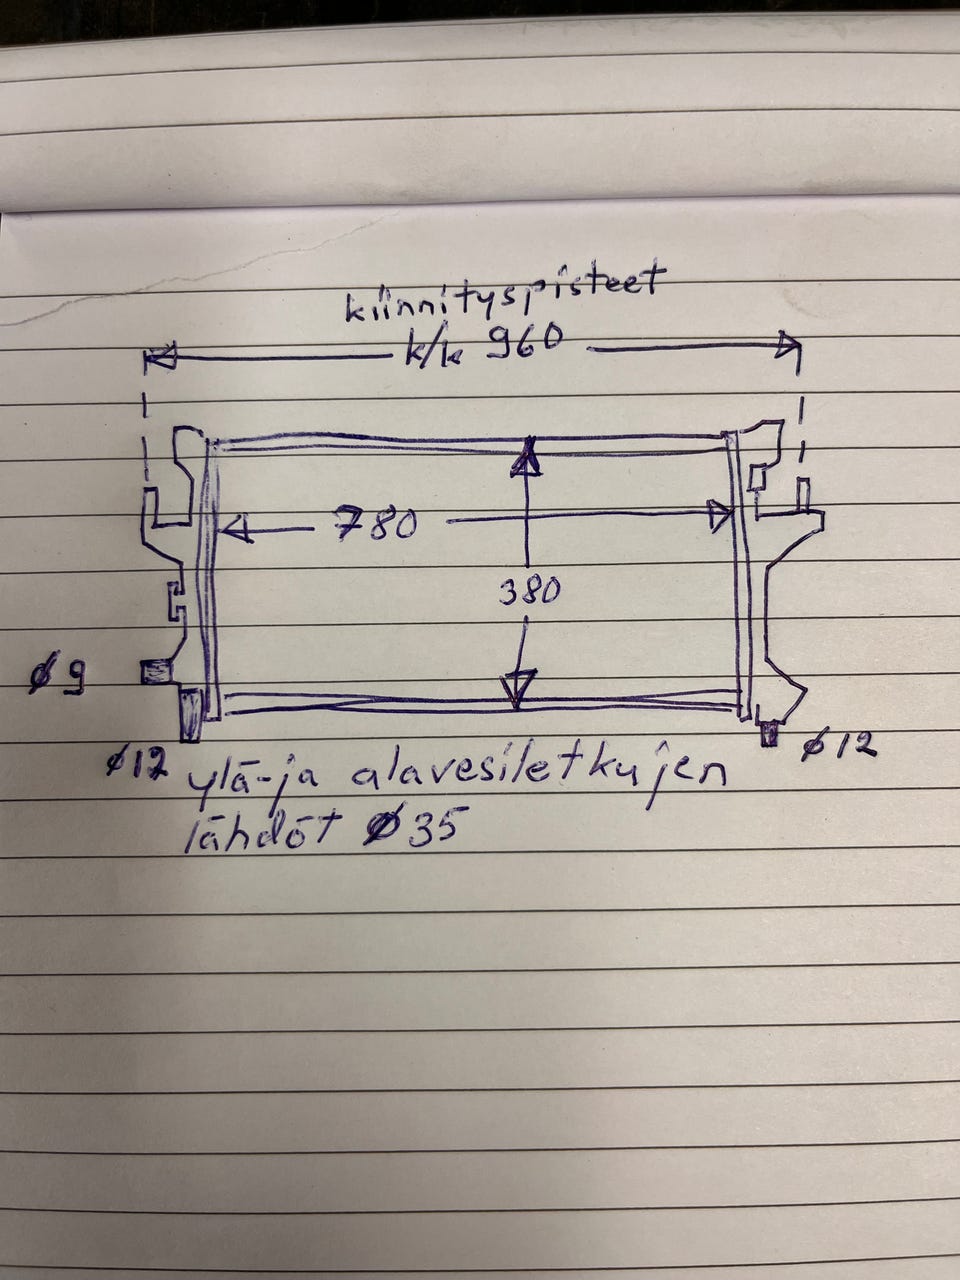 kiinnityspisteet
k/k 960
780
380
ø 9
ø12
ø12
ylä-ja alavesiletkujen
lähdöt ø35